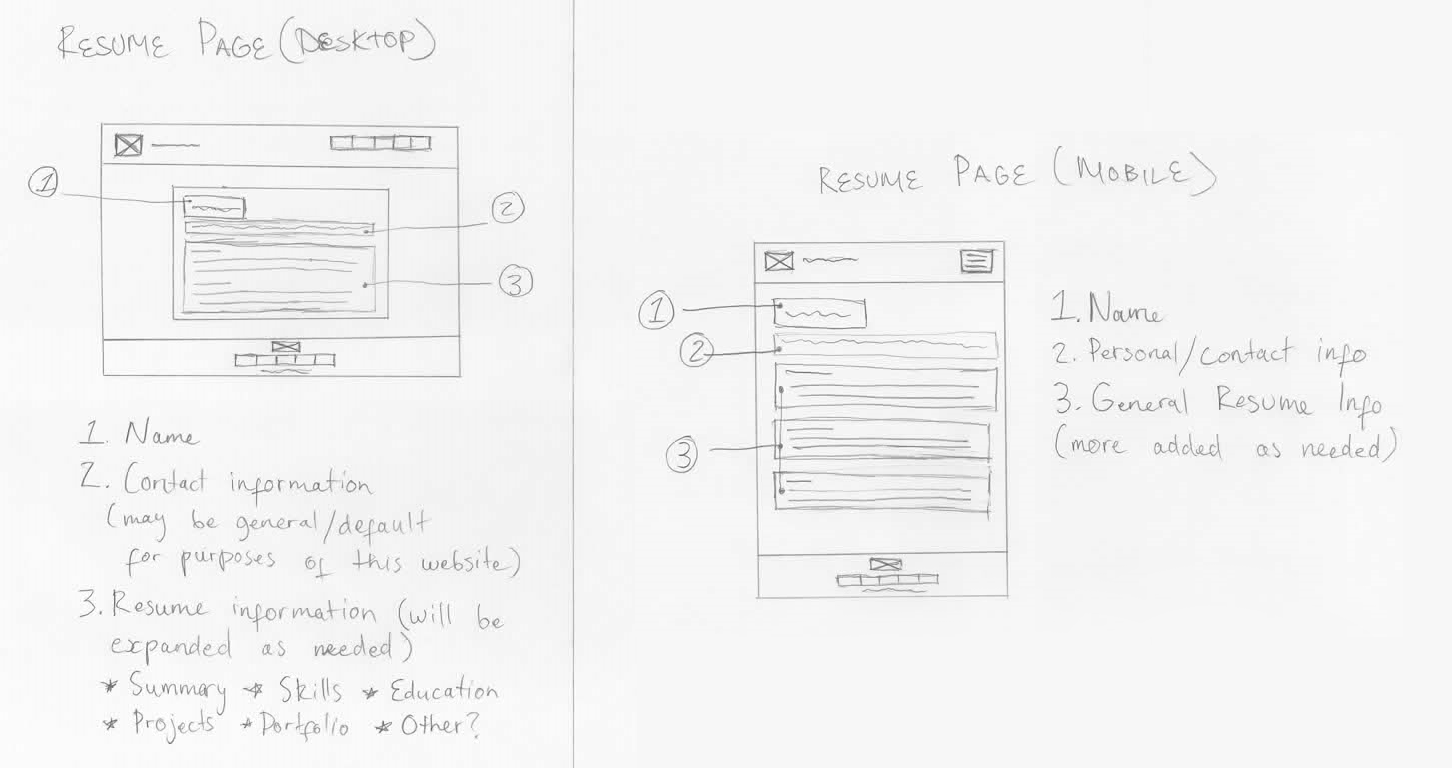 RESUME PAGE (DESKTOP)
1
2
3
1. Name
2. Contact information
(may be general/default
for purposes of this website)
3. Resume information (will be
expanded as needed)
* Summary * Skills * Education
* Projects * Portfolio * Other?
RESUME PAGE (MOBILE)
1
2
3
1. Name
2. Personal/contact info
3. General Resume Info
(more added as needed)